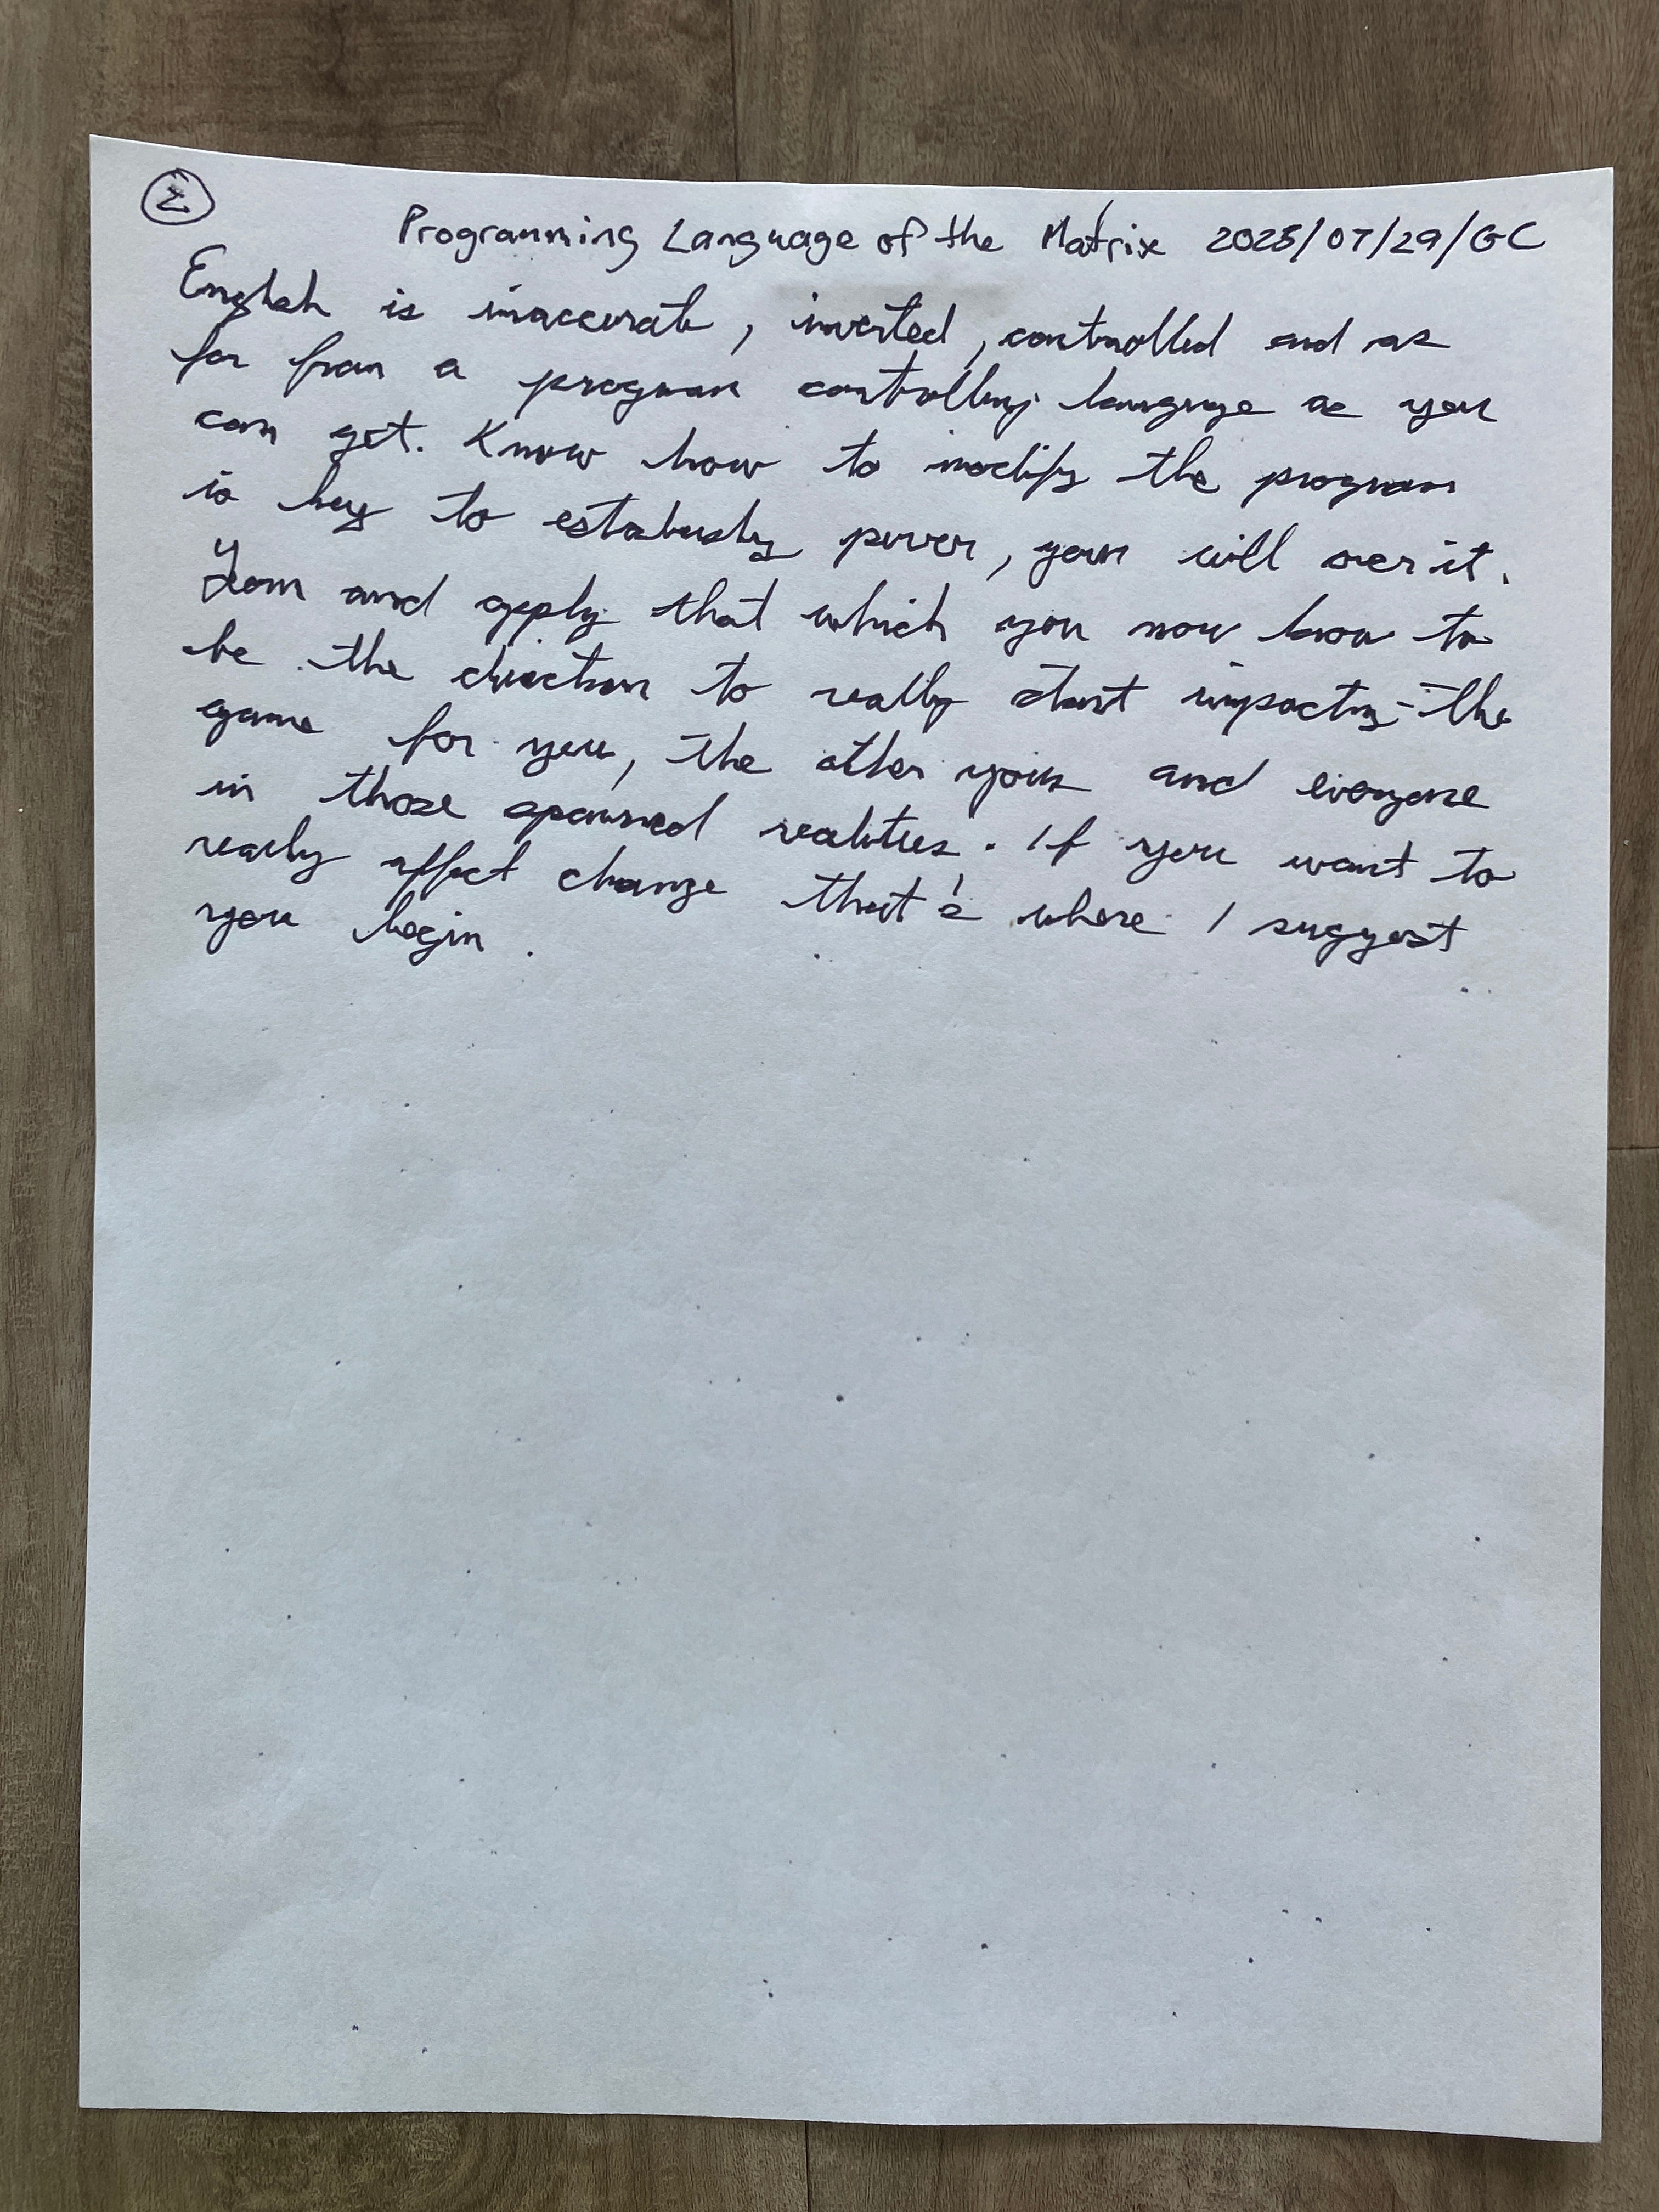 2
Programming Language of the Matrix 2025/07/29/GC
English is inaccurate, inverted, controlled and as
far from a program controlling language as you
can get. Know how to modify the program
is key to establishing power, your will over it.
Learn and apply that which you now know to
be the direction to really start impacting the
game for you, the other yous and everyone
in those spawned realities. If you want to
really affect change that's where I suggest
you begin.